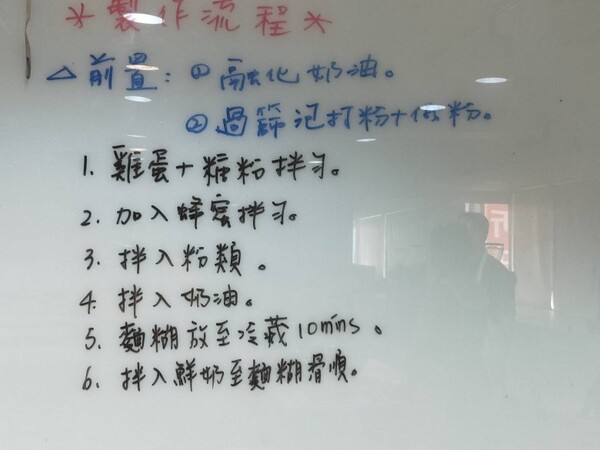 *製作流程*
△前置：①融化奶油。
②過篩泡打粉+低粉。
1. 雞蛋+糖粉拌勻。
2. 加入蜂蜜拌勻。
3. 拌入粉類。
4. 拌入奶油。
5. 麵糊放至冷藏10mins。
6. 拌入鮮奶至麵糊滑順。